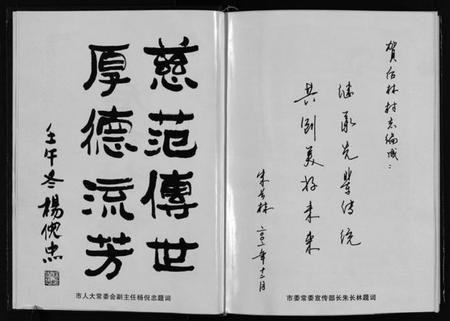 慈范傳世
厚德流芳
壬午冬 楊倪忠
市人大常委会副主任杨倪忠题词
賀后林村志编成：
继承先辈传统
共創美好未来
朱长林 年十二月
市委常委宣传部长朱长林题词